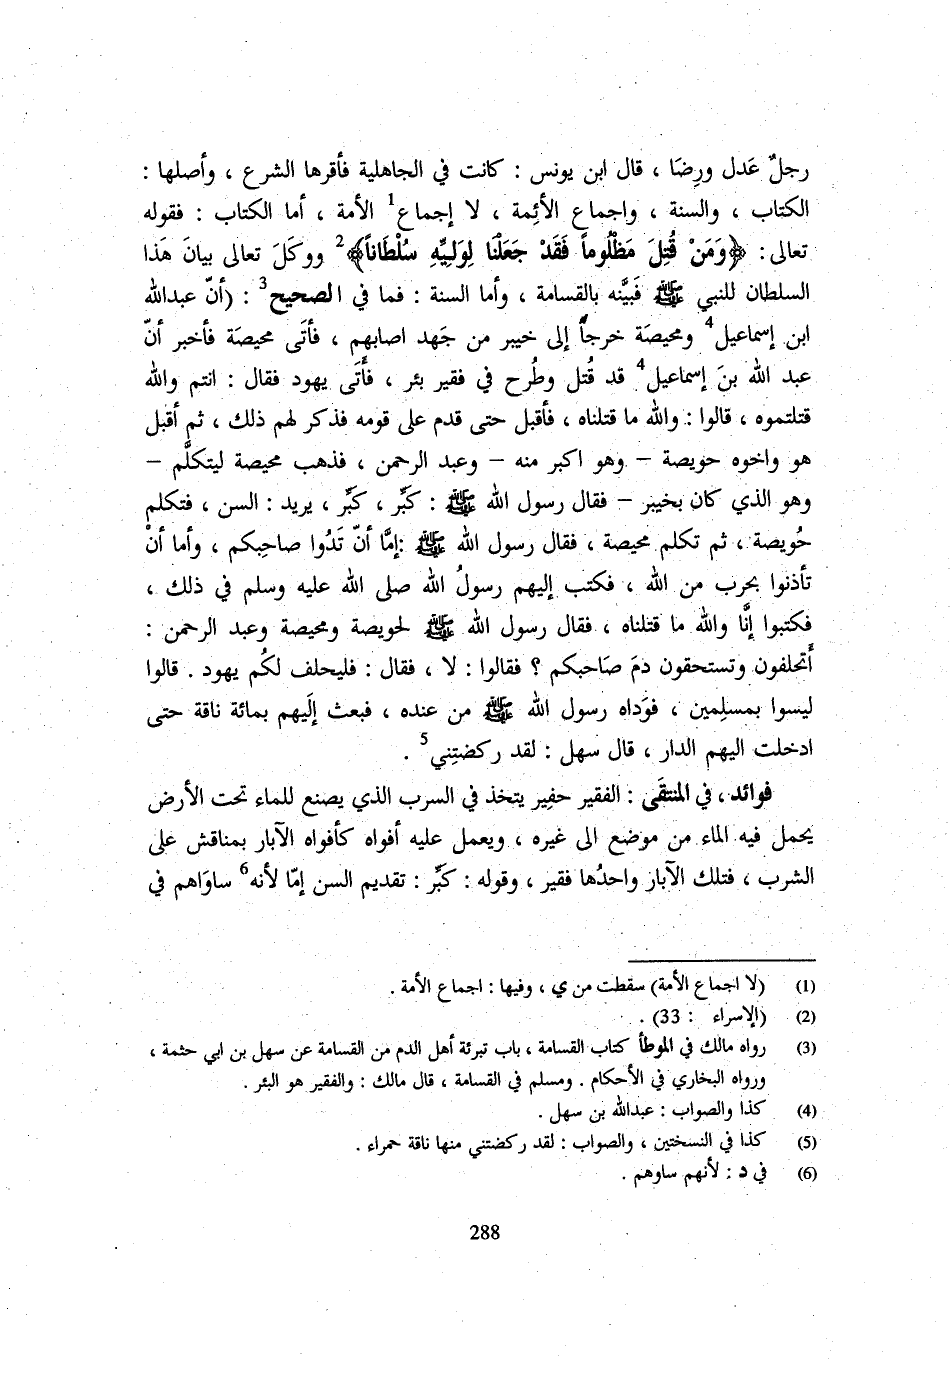 رجلٌ عَدل ورِضَا ، قال ابن يونس : كانت في الجاهلية فأقرها الشرع ، وأصلها :
الكتاب ، والسنة ، واجماع الأئِمة ، لا إجماع1 الأمة ، أما الكتاب : فقوله
تعالى : ﴿وَمَنْ قُتِلَ مَظْلُوماً فَقَدْ جَعَلْنَا لِوَلِيِّهِ سُلْطَاناً﴾2 ووكَلَ تعالى بيانَ هَذا
السلطان للنبي ﷺ فَبيَّنه بالقسامة ، وأما السنة : فما في الصحيح3 : (أنّ عبدالله
ابن إسماعيل4 ومحيصَة خرجاً إلى خيبر من جَهد اصابهم ، فأتَى محيصَة فأخبر أنّ
عبد الله بنَ إسماعيل4 قد قُتل وطُرح في فقير بئر ، فأَتَى يهود فقال : انتم والله
قتلتموه ، قالوا : والله ما قتلناه ، فأقبل حتى قدم على قومه فذكر لهم ذلك ، ثم أقبل
هو واخوه حويصة – وهو اكبر منه – وعبد الرحمن ، فذهب محيصة ليتكلَّم –
وهو الذي كان بخيبر – فقال رسول الله ﷺ : كبِّر ، كبِّر ، يريد : السن ، فتكلم
حُويصة ، ثم تكلم محيصة ، فقال رسول الله ﷺ :إمَّا أنّ تَدُوا صاحِبكم ، وأما أنْ
تأذنوا بحرب من الله ، فكتب إليهم رسولُ الله صلى الله عليه وسلم في ذلك ،
فكتبوا إنَّا والله ما قتلناه ، فقال رسول الله ﷺ لحويصة ومحيصة وعبد الرحمن :
أَتحلفون وتستحقون دمَ صَاحبكم ؟ فقالوا : لا ، فقال : فليحلف لكُم يهود . قالوا
ليسوا بمسلِمين ، فوَداه رسول الله ﷺ من عنده ، فبعث إلَيهم بمائة ناقة حتى
ادخلت اليهم الدار ، قال سهل : لقد ركضتِني5 .
فوائد، في المنتقَى : الفقير حفِير يتخذ في السرب الذي يصنع للماء تحت الأرض
يحمل فيه الماء من موضع الى غيره ، ويعمل عليه أفواه كأفواه الآبار بمناقش على
الشرب ، فتلك الآبار واحدُها فقير ، وقوله : كبِّر : تقديم السن إمّا لأنه6 ساوَاهم في
(1) (لا اجماع الأمة) سقطت من ي ، وفيها : اجماع الأمة .
(2) (الإسراء : 33) .
(3) رواه مالك في الموطأ كتاب القسامة ، باب تبرئة أهل الدم من القسامة عن سهل بن ابي حثمة ،
ورواه البخاري في الأحكام . ومسلم في القسامة ، قال مالك : والفقير هو البئر .
(4) كذا والصواب : عبدالله بن سهل .
(5) كذا في النسختين ، والصواب : لقد ركضتني منها ناقة حمراء .
(6) في د : لأنهم ساوهم .
288